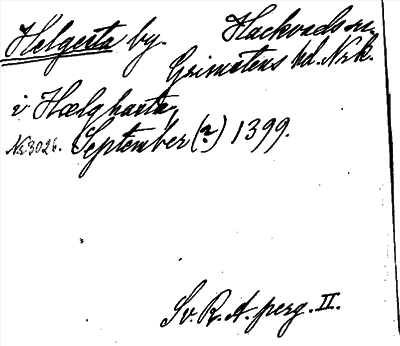 Helgesta by. Hackvads sn.
Grimstens hd. Nrk.
i Hælghasta,
Nr 3026. September (?) 1399.
Sv. R. A. perg. II.